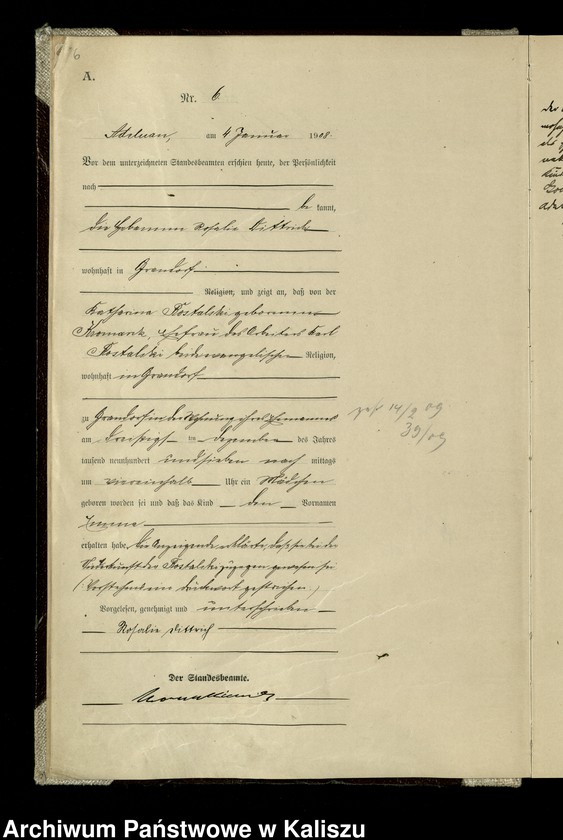 6
A.
Nr. 6
Adelnau, am 4 Januar 1908
Vor dem unterzeichneten Standesbeamten erschien heute, der Persönlichkeit
nach
be kannt,
die Hebamme Rosalie Dittrich
wohnhaft in Grandorf
Religion, und zeigt an, daß von der
Katharina Kostalski geborenen
Ehefrau des Arbeiters Karl
Kostalski beide evangelischer Religion,
wohnhaft in Grandorf
zu Grandorf in der Wohnung ihres Ehemannes
am dreißigsten Dezember des Jahres
tausend neunhundert und sieben nach mittags
um viereinhalb Uhr ein Mädchen
geboren worden sei und daß das Kind den Vornamen
Emma
erhalten habe. Die Anzeigende erklärte, daß sie bei der
Niederkunft der Kostalski zugegen gewesen sei
(Vorstehend ein Druckwort gestrichen.)
Vorgelesen, genehmigt und unterschrieben
Rosalie Dittrich
Der Standesbeamte.
gest 14/2 09
39/09
Archiwum Państwowe w Kaliszu